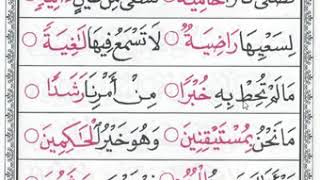 تَصْلَىٰ نَارًا حَامِيَةً تُسْقَىٰ مِنْ عَيْنٍ
لِسَعْيِهَا رَاضِيَةٌ لَا تَسْمَعُ فِيهَا لَاغِيَةً
مَالَمْ تُحِطْ بِهِ خُبْرًا مِنْ أَمْرِنَا رَشَدًا
مَانَحْنُ بِمُسْتَيْقِنِينَ وَهُوَ خَيْرُ الْحَاكِمِينَ